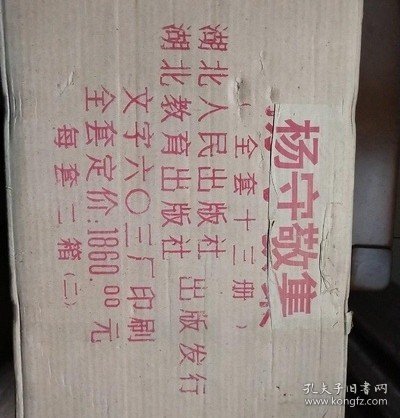 杨守敬集
(全套十三册)
湖北人民出版社
湖北教育出版社
出版发行
文字六〇三厂印刷
全套定价:1860.00元
每套二箱(二)
孔夫子旧书网
www.kongfz.com